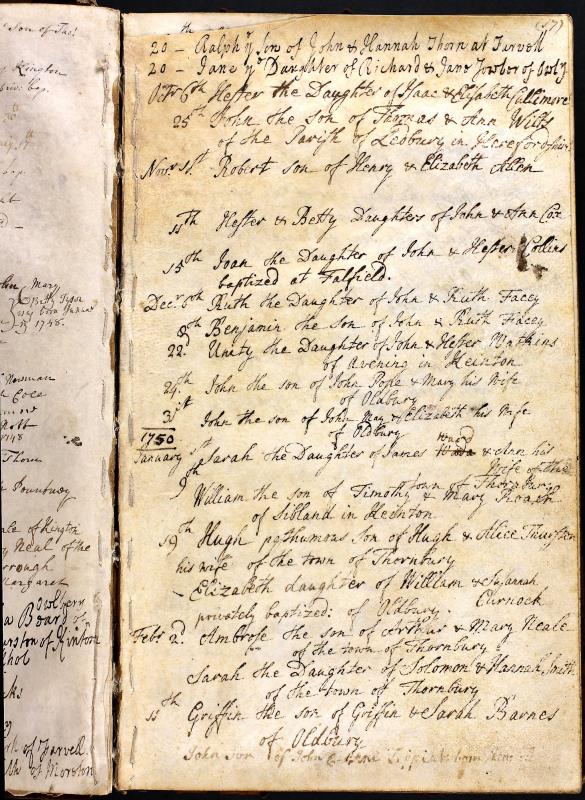 (57)
20 - Ralph yᵉ Son of John & Hannah Thorn at Farvell
20 - Jane yᵉ Daughter of Richard & Jane
Octr 6th Hester the Daughter of Isaac & Elisabeth Cullimore
25th John the son of Thomas & Ann Wills
of the Parish of Ledbury in Herefordshire
Novr 1st Robert son of Henry & Elizabeth Allen
11th Hester & Betty Daughters of John & Ann Cox
15th Joan the Daughter of John & Hester Collins
baptized at Falfield.
Decr 6th Ruth the Daughter of John & Ruth Facey
8th Benjamin the son of John & Ruth Facey
22d Unity the Daughter of John & Hester Watkins
of Avening in Heinton
24th John the son of John Pope & Mary his Wife
of Oldbury
31st John the son of John May & Elizabeth his Wife
of Oldbury
1750
January 1st Sarah the Daughter of James Wade & Ann his
Wife of the
town of Thornbury
9th William the son of Timothy & Mary Roach
of Sibland in Heinton
19th Hugh posthumous son of Hugh & Alice Thurston
his wife of the town of Thornbury
- Elizabeth daughter of William & Susannah
Curnock
privately baptized: of Oldbury.
Febr 2d Ambrose the son of Arthur & Mary Neale
of the town of Thornbury
Sarah the Daughter of Solomon & Hannah Smith
of the town of Thornbury
11th Griffin the son of Griffin & Sarah Barnes
of Oldbury
John son of John &
Son of
Kington
Mary
1748.
Newman
Cole
1748
Thorn
of Kington
Neal of the
Margaret
Beard of
of Farvell
of Morton